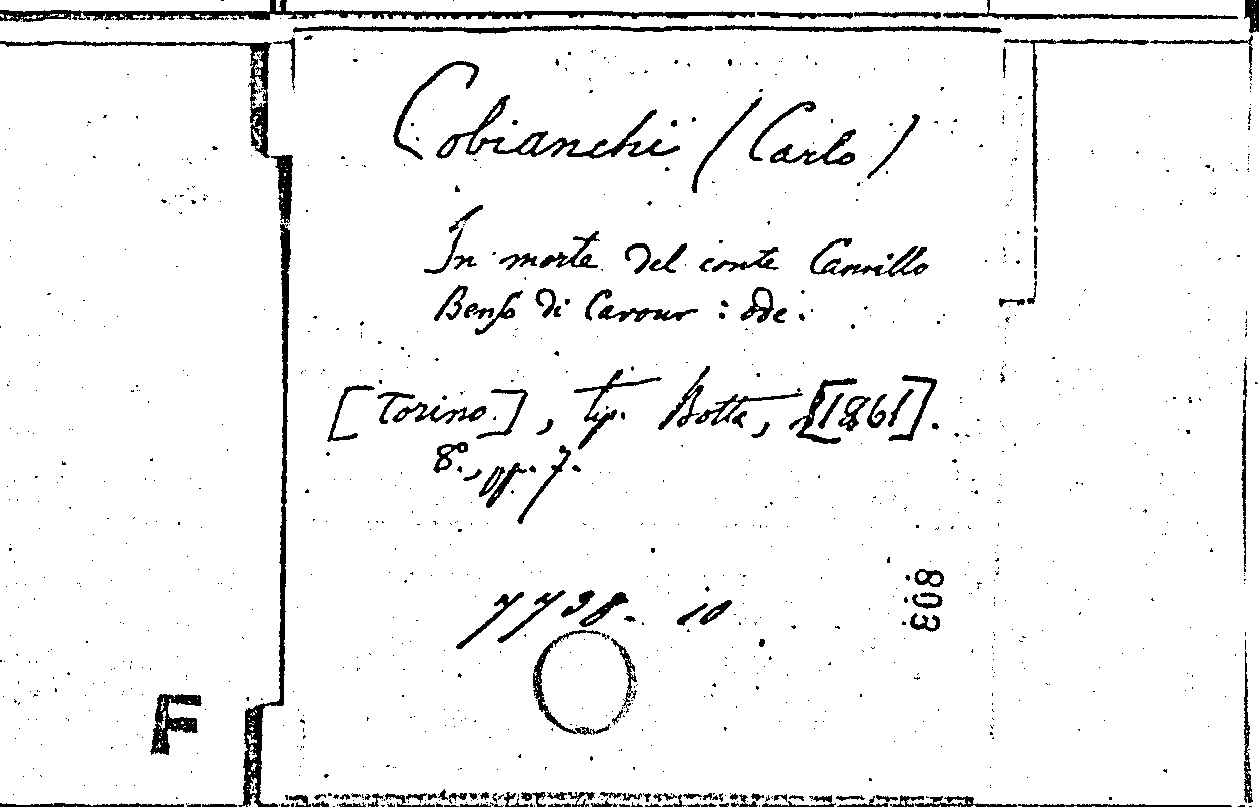 Cobianchi (Carlo)
In morte del conte Camillo
Benso di Cavour : ode.
[Torino.], tip. Botta, [1861].
8°., pp. 7.
7738. 10
803
F